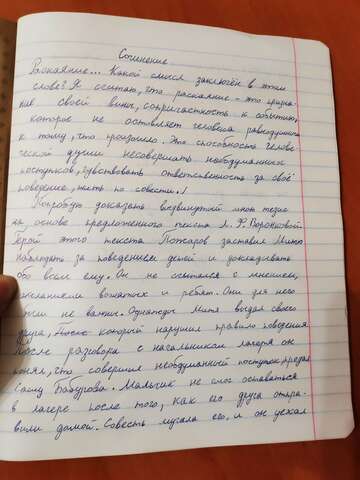 Сочинение
Раскаяние... Какой смысл заключён в этом
слове? Я считаю, что раскаяние - это призна-
ние своей вины, сопричастность к событию,
которое не оставляет человека равнодушного
к тому, что произошло. Это способность челове-
ческой души несовершать необдуманных
поступков, чувствовать ответственность за своё
поведение, жить по совести.
Попробую доказать выдвинутый мною тезис
на основе предложенного текста Л. Ф. Воронковой.
Герой этого текста Пожаров заставил Митю
наблюдать за поведением детей и докладывать
обо всем ему. Он не считался с мнением,
желаниями вожатых и ребят. Они для него
были не важны. Однажды Митя выдал своего
друга, который нарушил правило поведения.
После разговора с начальником лагеря он
понял, что совершил необдуманный поступок, предал
Сашу Бабурова. Мальчик не смог оставаться
в лагере после того, как его друга отпра-
вили домой. Совесть мучала его, и он уехал